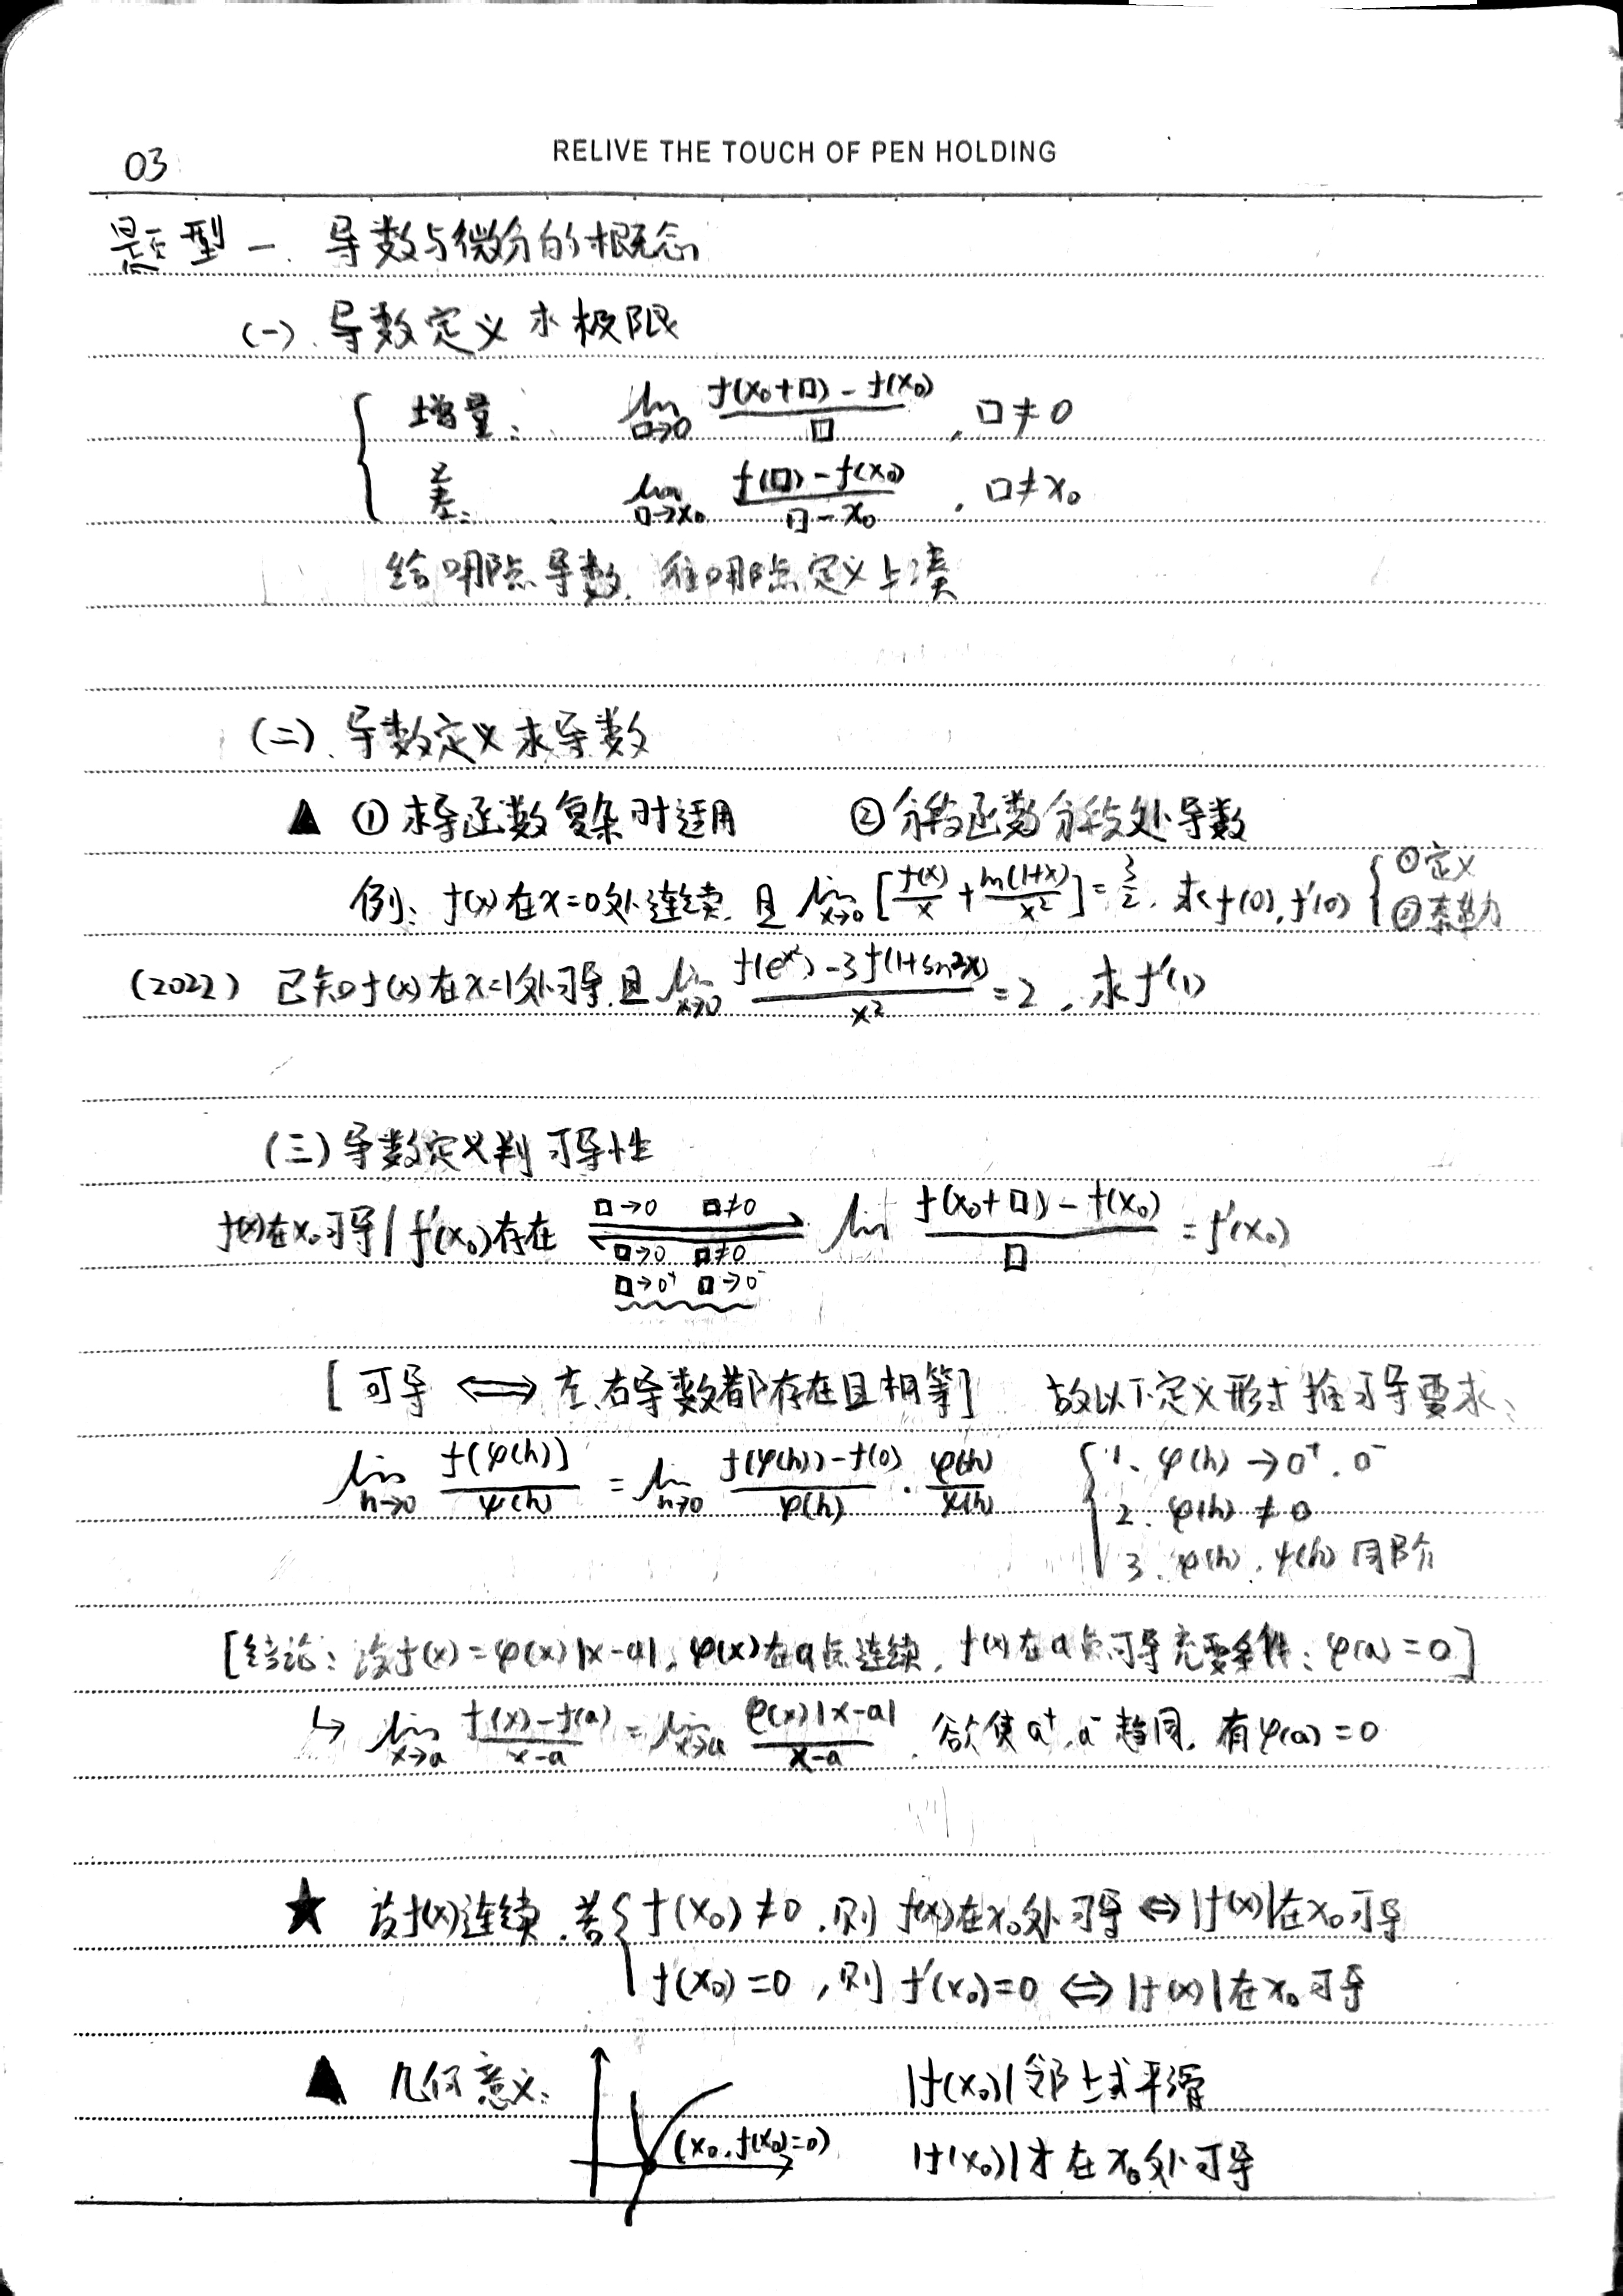 RELIVE THE TOUCH OF PEN HOLDING
03
题型一. 导数与微分的概念
(一). 导数定义求极限
增量: lim_{□→0} (f(x₀+□)-f(x₀))/□ , □≠0
差: lim_{□→x₀} (f(□)-f(x₀))/(□-x₀) , □≠x₀
给哪点导数, 往哪点定义上凑
(二). 导数定义求导数
▲ ① 求导函数复杂时适用 ② 分段函数分段处导数
例: f(x)在x=0处连续, 且 lim_{x→0} [f(x)/x + ln(1+x)/x²] = 3/2, 求f(0), f'(0) { ①定义 ②
(2022) 已知f(x)在x=1处可导, 且 lim_{x→0} (f(e^{x²})-3f(1+sin²x))/x² = 2 , 求f'(1)
(三) 导数定义判可导性
f(x)在x₀可导/f'(x₀)存在 □→0 □≠0 ⇌ □→0 □≠0 □→0⁺ □→0⁻ lim (f(x₀+□)-f(x₀))/□ = f'(x₀)
[可导 ⟺ 左、右导数都存在且相等] 故以下定义形式推可导要求:
lim_{h→0} f(φ(h))/ψ(h) = lim_{h→0} (f(φ(h))-f(0))/φ(h) · φ(h)/ψ(h) { 1. φ(h)→0⁺, 0⁻
2. φ(h)≠0
3. φ(h), ψ(h) 同阶
[结论: 设f(x)=φ(x)|x-a|, φ(x)在a点连续, f(x)在a点可导充要条件: φ(a)=0]
↳ lim_{x→a} (f(x)-f(a))/(x-a) = lim_{x→a} φ(x)|x-a|/(x-a) , 欲使a⁺, a⁻趋同, 有φ(a)=0
★ 设f(x)连续, 若{ f(x₀)≠0, 则 f(x)在x₀处可导⟺|f(x)|在x₀可导
f(x₀)=0, 则 f'(x₀)=0 ⟺ |f(x)|在x₀可导
▲ 几何意义: |f(x₀)|邻域平滑
(x₀, f(x₀)=0) |f(x₀)|才在x₀处可导